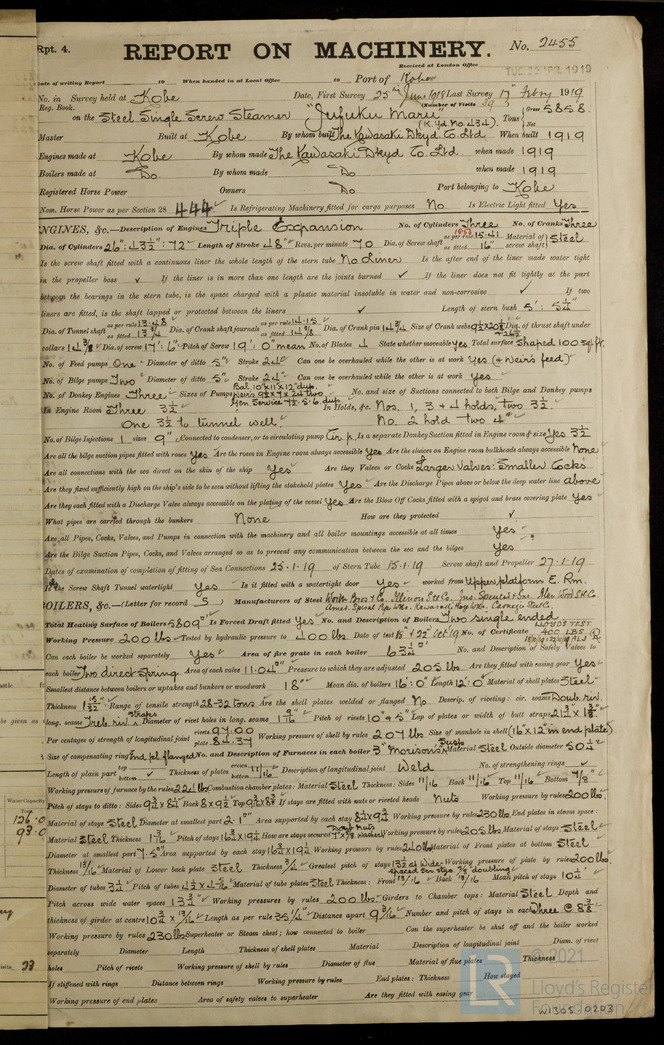 Rpt. 4.
REPORT ON MACHINERY. No. 2455
Received at London Office
TUE 22 APR 1919
Date of writing Report 19 When handed in at Local Office 19 Port of Kobe
No. in Survey held at Kobe Date, First Survey 25th June 1918 Last Survey 17th Febry 1919
Reg. Book. (Number of Visits 29)
on the Steel Single Screw Steamer "Jufuku Maru" (K. Yd. No. 434) Tons Gross 5858
Net
Master Built at Kobe By whom built The Kawasaki Dkyd Co. Ltd When built 1919
Engines made at Kobe By whom made The Kawasaki Dkyd Co. Ltd. when made 1919
Boilers made at Do. By whom made Do when made 1919
Registered Horse Power Owners Do Port belonging to Kobe
Nom. Horse Power as per Section 28 444 Is Refrigerating Machinery fitted for cargo purposes No Is Electric Light fitted Yes
ENGINES, &c.—Description of Engines Triple Expansion No. of Cylinders Three No. of Cranks Three
Dia. of Cylinders 26": 43½": 72" Length of Stroke 48" Revs. per minute 70 Dia. of Screw shaft as per rule 15.41 as fitted 16" Material of screw shaft Steel
Is the screw shaft fitted with a continuous liner the whole length of the stern tube No Liner Is the after end of the liner made water tight
in the propeller boss ✓ If the liner is in more than one length are the joints burned ✓ If the liner does not fit tightly at the part
between the bearings in the stern tube, is the space charged with a plastic material insoluble in water and non-corrosive ✓ If two
liners are fitted, is the shaft lapped or protected between the liners ✓ Length of stern bush 5': 5¼"
Dia. of Tunnel shaft as per rule 13.48 as fitted 13¾ Dia. of Crank shaft journals as per rule 14.15 as fitted 14⅜ Dia. of Crank pin 14¾ Size of Crank webs Dia. of thrust shaft under
collars 14⅜ Dia. of screw 17': 6" Pitch of Screw 19': 0" mean No. of Blades 4 State whether moveable Yes Total surface Shaped 100 sq. ft.
No. of Feed pumps One Diameter of ditto 5" Stroke 24" Can one be overhauled while the other is at work Yes (& Weir's feed)
No. of Bilge pumps Two Diameter of ditto 5" Stroke 24" Can one be overhauled while the other is at work Yes
No. of Donkey Engines Three Sizes of Pumps Bal. 10 x 11 x 12 dup. Gen. Service 7½. 5. 6. dup. No. and size of Suctions connected to both Bilge and Donkey pumps
In Engine Room Three 3½" In Holds, &c. Nos. 1, 3 & 4 holds, two 3½"
One 3½ to tunnel well. No. 2 hold two 4"
No. of Bilge Injections 1 sizes 9" Connected to condenser, or to circulating pump Cir. p. Is a separate Donkey Suction fitted in Engine room & size Yes 3½
Are all the bilge suction pipes fitted with roses Yes Are the roses in Engine room always accessible Yes Are the sluices on Engine room bulkheads always accessible None
Are all connections with the sea direct on the skin of the ship Yes Are they Valves or Cocks Larger Valves: Smaller Cocks
Are they fixed sufficiently high on the ship's side to be seen without lifting the stokehold plates Yes Are the Discharge Pipes above or below the deep water line above
Are they each fitted with a Discharge Valve always accessible on the plating of the vessel Yes Are the Blow Off Cocks fitted with a spigot and brass covering plate Yes
What pipes are carried through the bunkers None How are they protected ✓
Are all Pipes, Cocks, Valves, and Pumps in connection with the machinery and all boiler mountings accessible at all times Yes
Are the Bilge Suction Pipes, Cocks, and Valves arranged so as to prevent any communication between the sea and the bilges Yes
Dates of examination of completion of fitting of Sea Connections 25.1.19 of Stern Tube 15.1.19 Screw shaft and Propeller 27.1.19
Is the Screw Shaft Tunnel watertight Yes Is it fitted with a watertight door Yes worked from Upper platform E. Rm.
BOILERS, &c.—(Letter for record S) Manufacturers of Steel
Total Heating Surface of Boilers 5809 Is Forced Draft fitted Yes No. and Description of Boilers Two single ended
Working Pressure 200 lbs Tested by hydraulic pressure to 400 lbs. Date of test No. of Certificate
LLOYD'S TEST 400 LBS
Can each boiler be worked separately Yes Area of fire grate in each boiler 63¼ No. and Description of Safety Valves to
each boiler Two direct Spring Area of each valve 11.04" Pressure to which they are adjusted 205 lbs Are they fitted with easing gear Yes
Smallest distance between boilers or uptakes and bunkers or woodwork 18" Mean dia. of boilers 16': 0" Length 12': 0" Material of shell plates Steel
Thickness 1 15/32 Range of tensile strength 28-32 tons Are the shell plates welded or flanged No Descrip. of riveting: cir. seams Doub. riv.
long. seams Treb. riv. d. straps Diameter of rivet holes in long. seams 1 9/16 Pitch of rivets 10" & 5" Lap of plates or width of butt straps
Per centages of strength of longitudinal joint rivets 97.00 plate 84.37 Working pressure of shell by rules 207 lbs Size of manhole in shell (16 x 12 in end plate)
Size of compensating ring End pl. flanged No. and Description of Furnaces in each boiler 3 Morison's Susp Material Steel Outside diameter 50¼"
Length of plain part top bottom ✓ Thickness of plates crown bottom 11/16 Description of longitudinal joint Weld No. of strengthening rings ✓
Working pressure of furnace by the rules 224 lbs Combustion chamber plates: Material Steel Thickness: Sides 11/16 Back 11/16 Top 11/16 Bottom 7/8
Pitch of stays to ditto: Sides 9¼ x 8¼ Back 8 x 9½ Top If stays are fitted with nuts or riveted heads Nuts Working pressure by rules 200 lbs.
Material of stays Steel Diameter at smallest part 2.1" Area supported by each stay 8¼ x 9¼ Working pressure by rules 230 lbs End plates in steam space:
Material Steel Thickness 1 3/16 Pitch of stays 16¾ x 19¼ How are stays secured Working pressure by rules 205 lbs Material of stays Steel
Diameter at smallest part Area supported by each stay 16¾ x 19¼ Working pressure by rules 240 lbs Material of Front plates at bottom Steel
Thickness 13/16 Material of Lower back plate Steel Thickness Greatest pitch of stays Working pressure of plate by rules 200 lbs.
Diameter of tubes 3¼" Pitch of tubes Material of tube plates Steel Thickness: Front 13/16 Back 13/16 Mean pitch of stays 10¼"
Pitch across wide water spaces 13¾" Working pressures by rules 200 lbs Girders to Chamber tops: Material Steel Depth and
thickness of girder at centre Length as per rule 35¼ Distance apart 9 9/16 Number and pitch of stays in each Three @ 8⅞"
Working pressure by rules 230 lbs Superheater or Steam chest; how connected to boiler Can the superheater be shut off and the boiler worked
separately Diameter Length Thickness of shell plates Material Description of longitudinal joint Diam. of rivet
holes Pitch of rivets Working pressure of shell by rules Diameter of flue Material of flue plates Thickness
If stiffened with rings Distance between rings Working pressure by rules End plates: Thickness How stayed
Working pressure of end plates Area of safety valves to superheater Are they fitted with easing gear
© 2021
Lloyd's Register
Foundation
W1305-0203